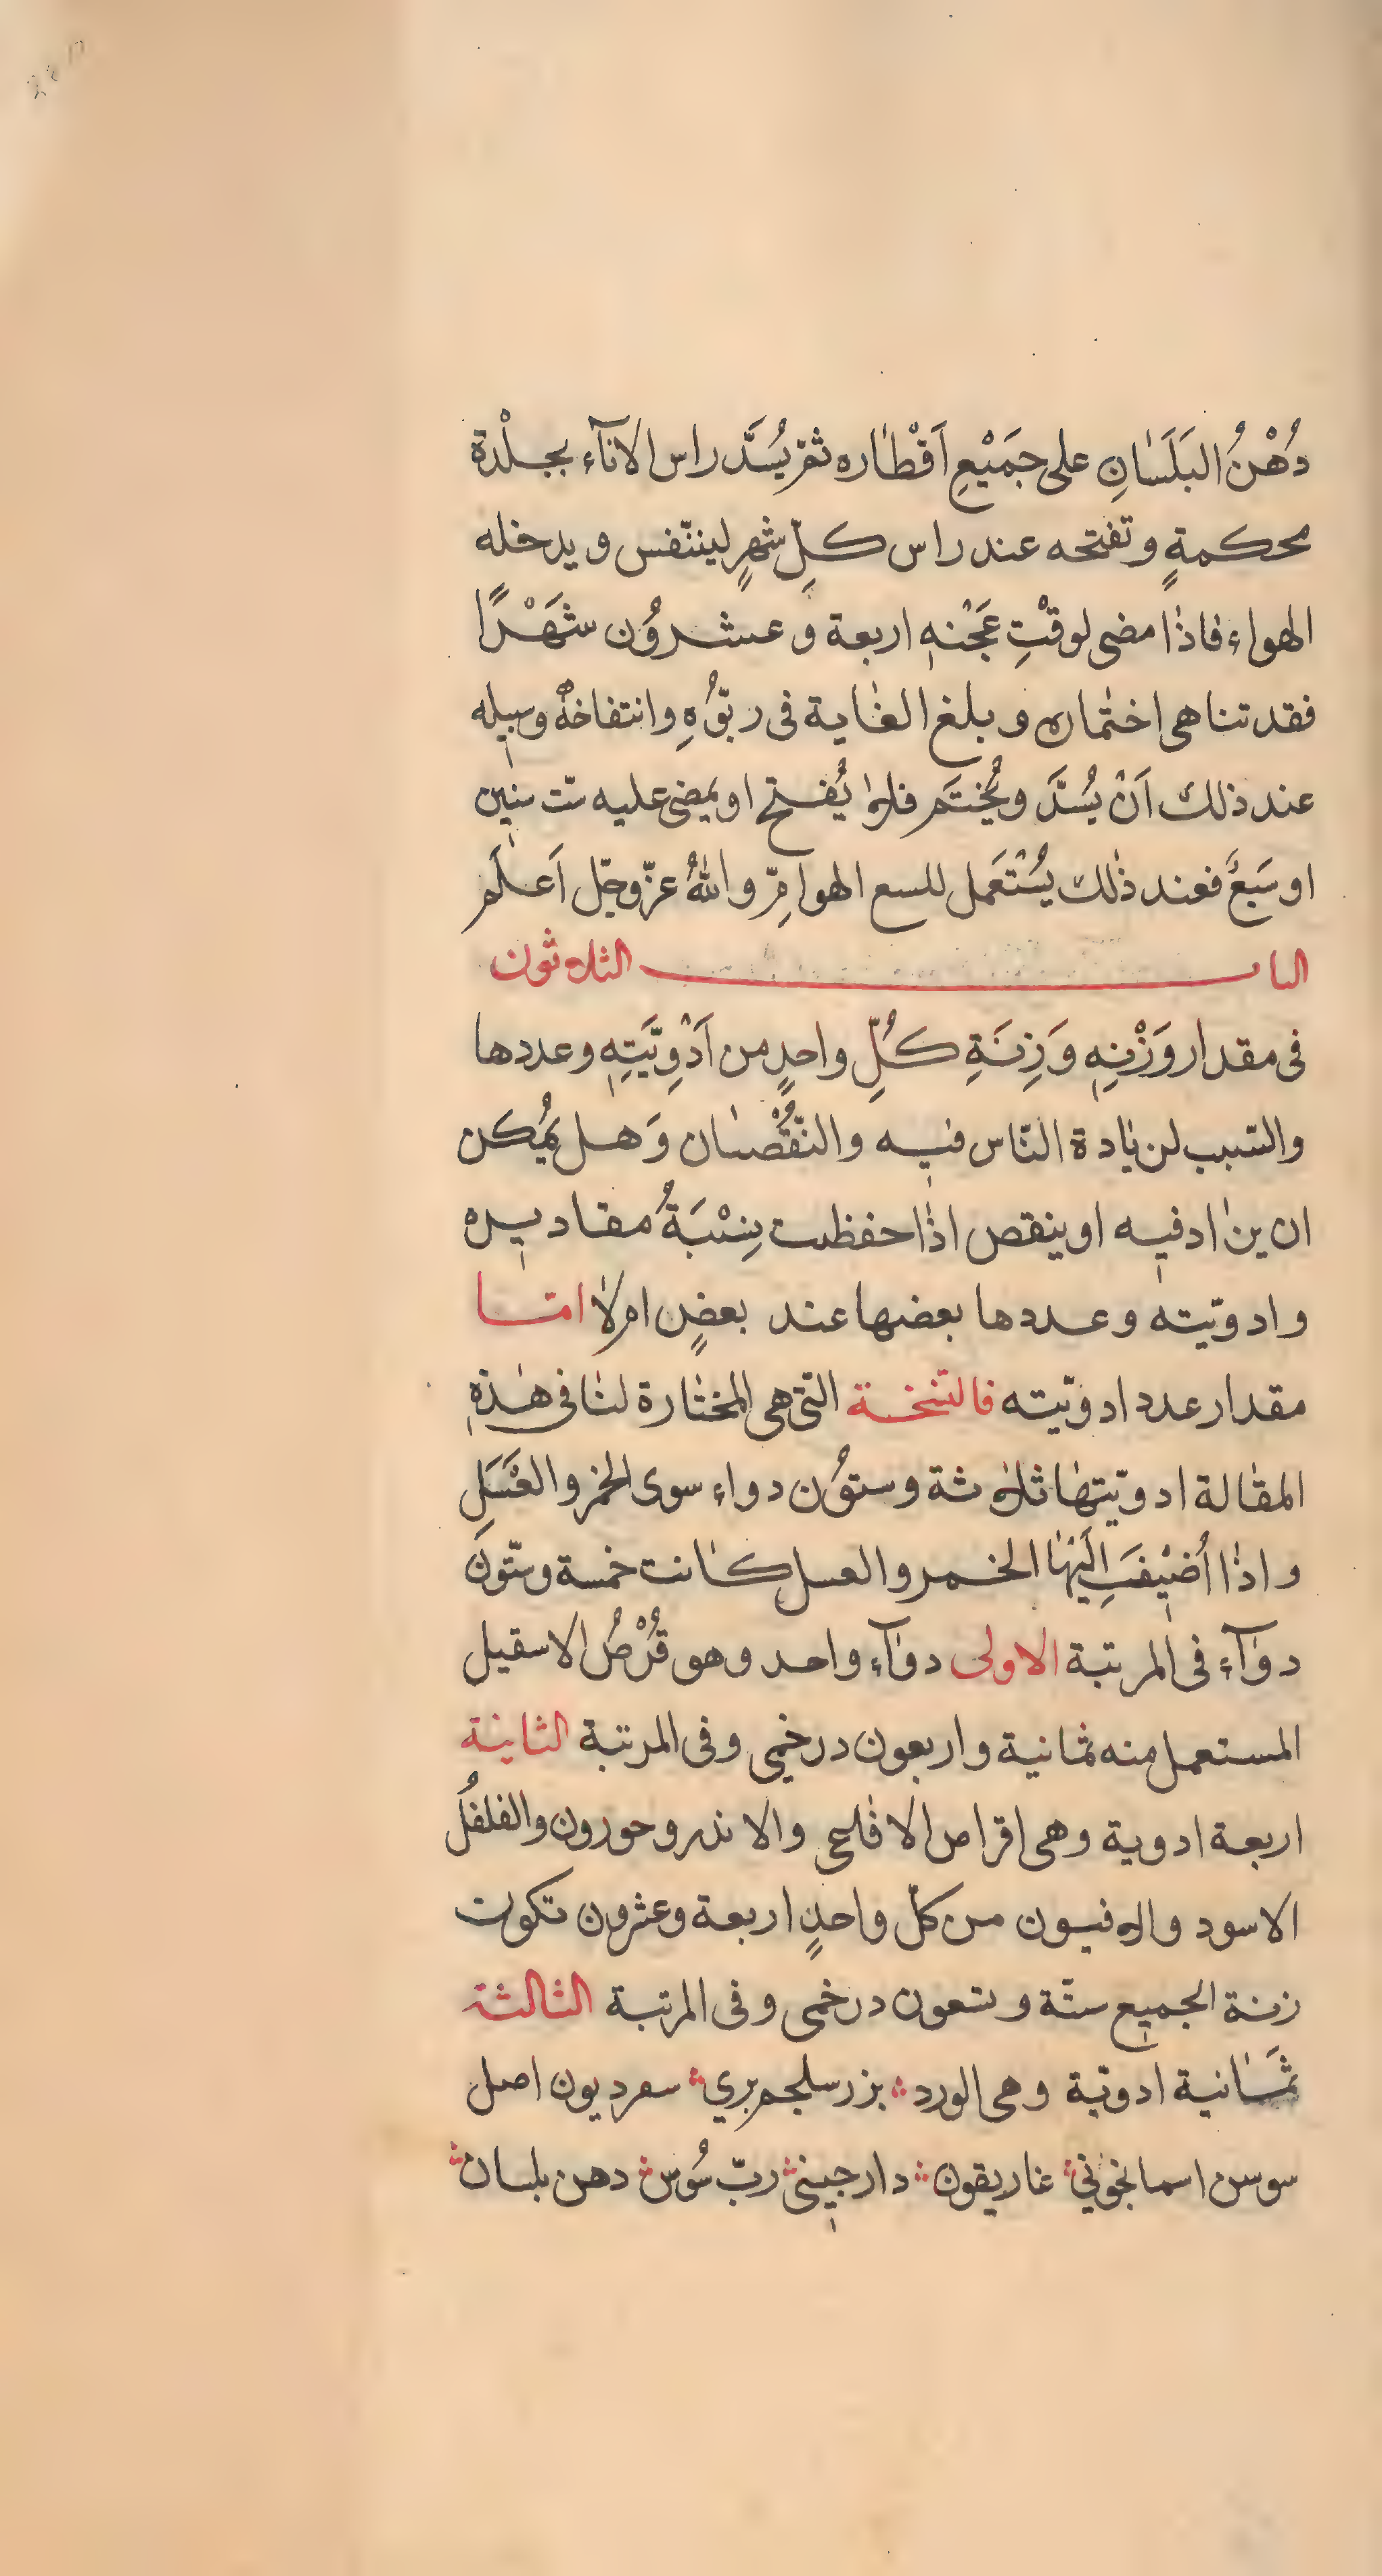 دُهْنُ البَلَسَانِ على جَمَيْعِ اَقْطَاره ثم يُسَدَّ راس الانآء بجلْدة
محكمةٍ وتفتحه عند راس كلِّ شهرٍ ليتنّفس ويدخله
الهواء فاذا مضى لوقْتِ عَجْنهِ اربعة وعشروُن شَهَرًا
فقد تناهى اختماره وبلغ الغاية فى ربوُّهِ وانتفاخهُ وسبيله
عند ذلك اَنْ يُسَدَّ ويُختَم فلا يُفتح او يمضى عليه ستّ سنين
او سَبعَّ فعند ذلك يُسْتَعَمل للسع الهوامِّ واللهُ عزّوجّل اَعلَم
الباب الثلاثون
فى مقدار وَزْنِهِ وَزِنَةِ كُلِّ واحدٍ من اَدْوِيَتّهِ وعددها
والسّبب لزيادة النّاس فيه والنّقُصْان وَهل يمُكن
ان يزاد فيه او ينقص اذا حفظت نِسْبَةُ مقاديره
وادويّته وعددها بعضها عند بعضٍ ام لا امّا
مقدار عدد ادويّته فالنّسخة التّى هى المختارة لنا فى هذهِ
المقالة ادويّتها ثلاثة وستوُن دواء سوى الخمر والعَسَلِ
واذا اُضيْفَت اِلَيْهَا الخمر والعسل كانت خمسة وستّونَ
دوآء فى المرتبة الاولى دوآء واحد وهو قُرْصُ الاسقيل
المستعمل منه ثمانية واربعون درخمي وفى المرتبة الثانية
اربعة ادوية وهى اقراص الافاعى والاندروخورون والفلفُل
الاسود والافيون من كلّ واحدٍ اربعة وعشرون تكون
زنة الجميع ستّة وتسعون درخمى وفى المرتبة الثالثة
ثَمَانية ادويّة وهى الورد بزر سلجم بري سقرديون اصل
سوسن اسمانجوني غاريقون دارجيني ربّ سُوس دهن بلسان